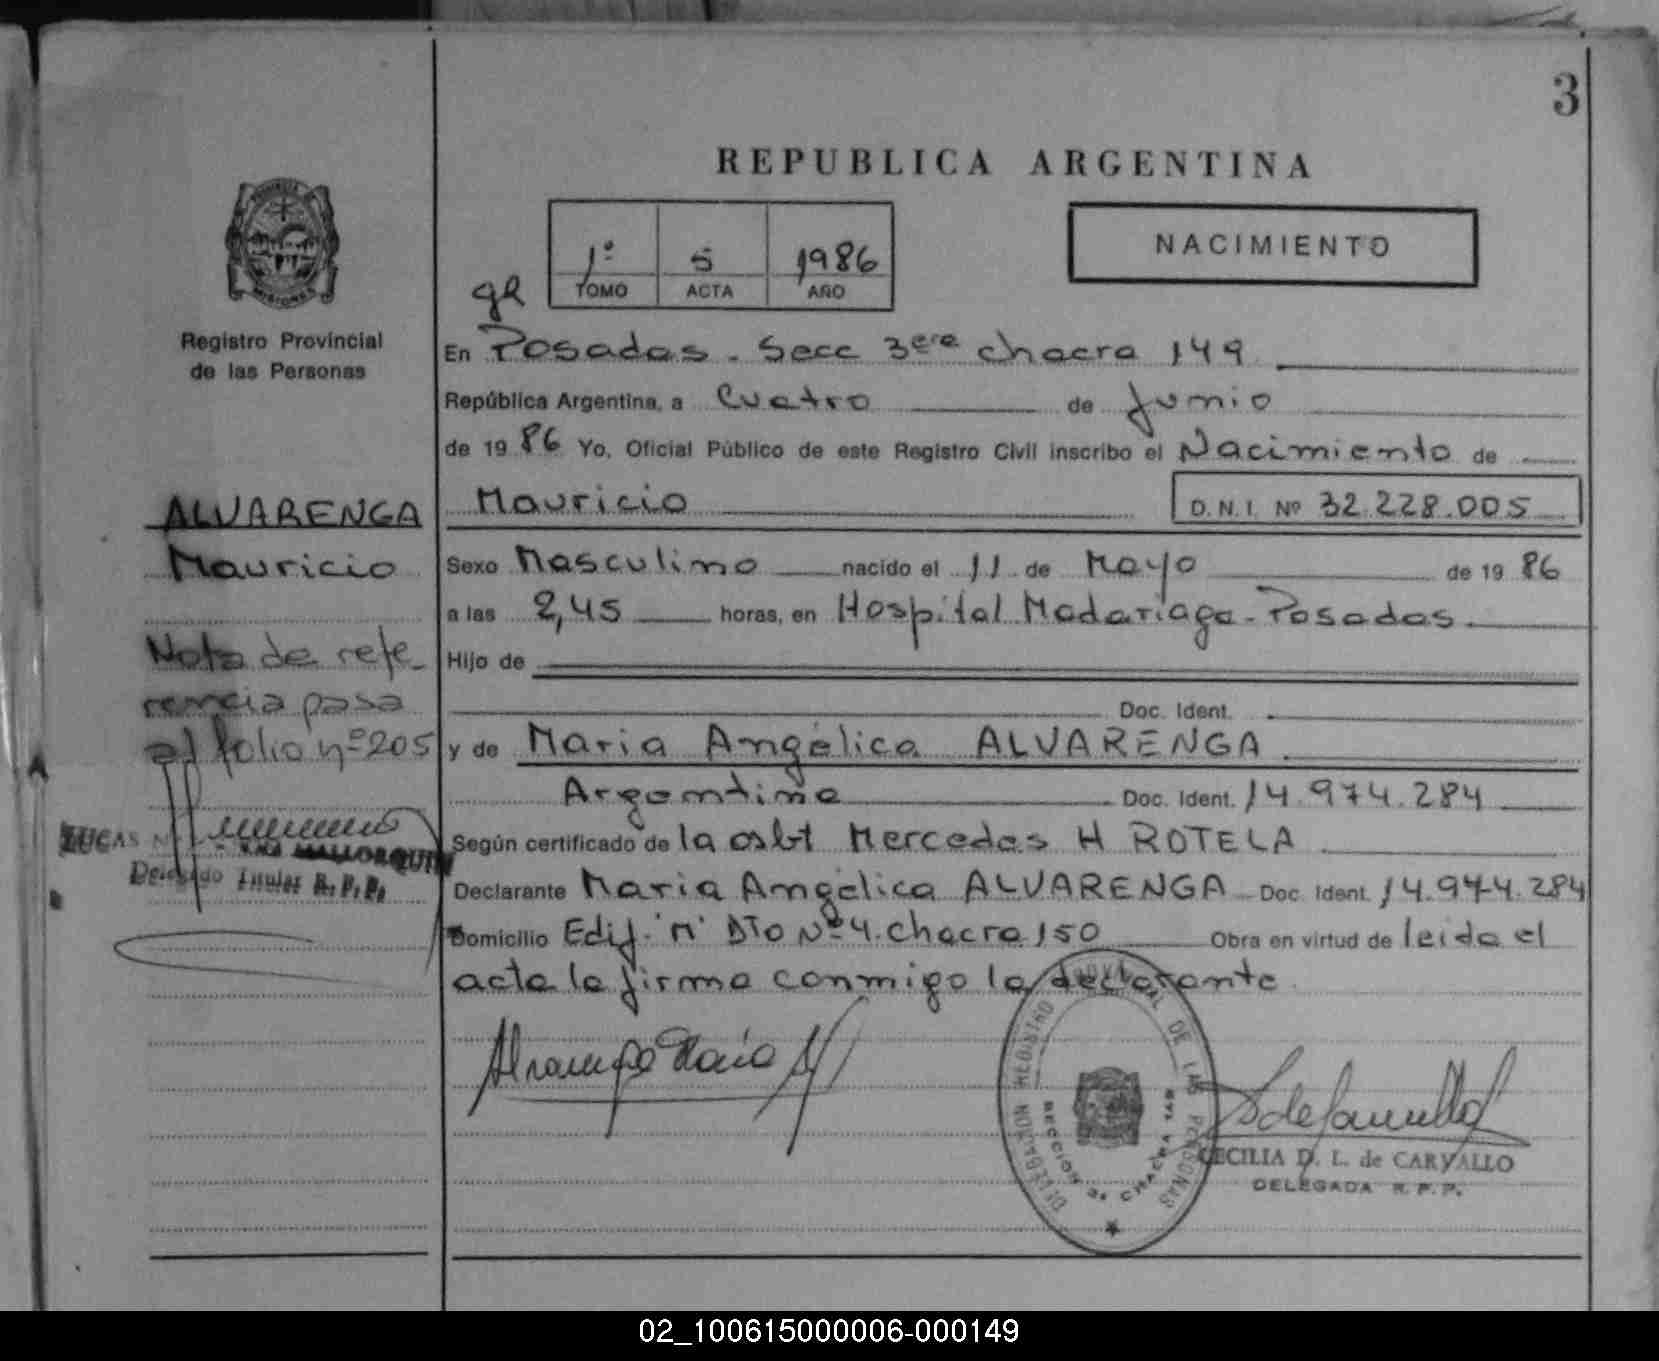 3
REPUBLICA ARGENTINA
1º 5 1986
TOMO ACTA AÑO
NACIMIENTO
Registro Provincial
de las Personas
En Posadas - Secc 3era chacra 149
República Argentina, a Cuatro de Junio
de 1986 Yo, Oficial Público de este Registro Civil inscribo el Nacimiento de
Mauricio D.N.I. Nº 32.228.005
ALVARENGA
Mauricio
Nota de refe-
rencia pasa
al folio nº 205
LUCAS
MALLORQUIN
Delegado Titular R.P.P.
Sexo Masculino nacido el 11 de Mayo de 1986
a las 2,45 horas, en Hospital Madariaga - Posadas
Hijo de
Doc. Ident.
y de Maria Angélica ALVARENGA
Argentina Doc. Ident. 14.974.284
Según certificado de la obst Mercedes H ROTELA
Declarante Maria Angélica ALVARENGA Doc. Ident. 14.974.284
Domicilio Edif. "M" DTO Nº 4. chacra 150 Obra en virtud de leida el
acta la firma conmigo la declarante
Alvarenga Maria A
DELEGACION REGISTRO PROVINCIAL DE LAS PERSONAS
SECCION 3a CHACRA 149
CECILIA D. L. de CARVALLO
DELEGADA R.P.P.
02_100615000006-000149